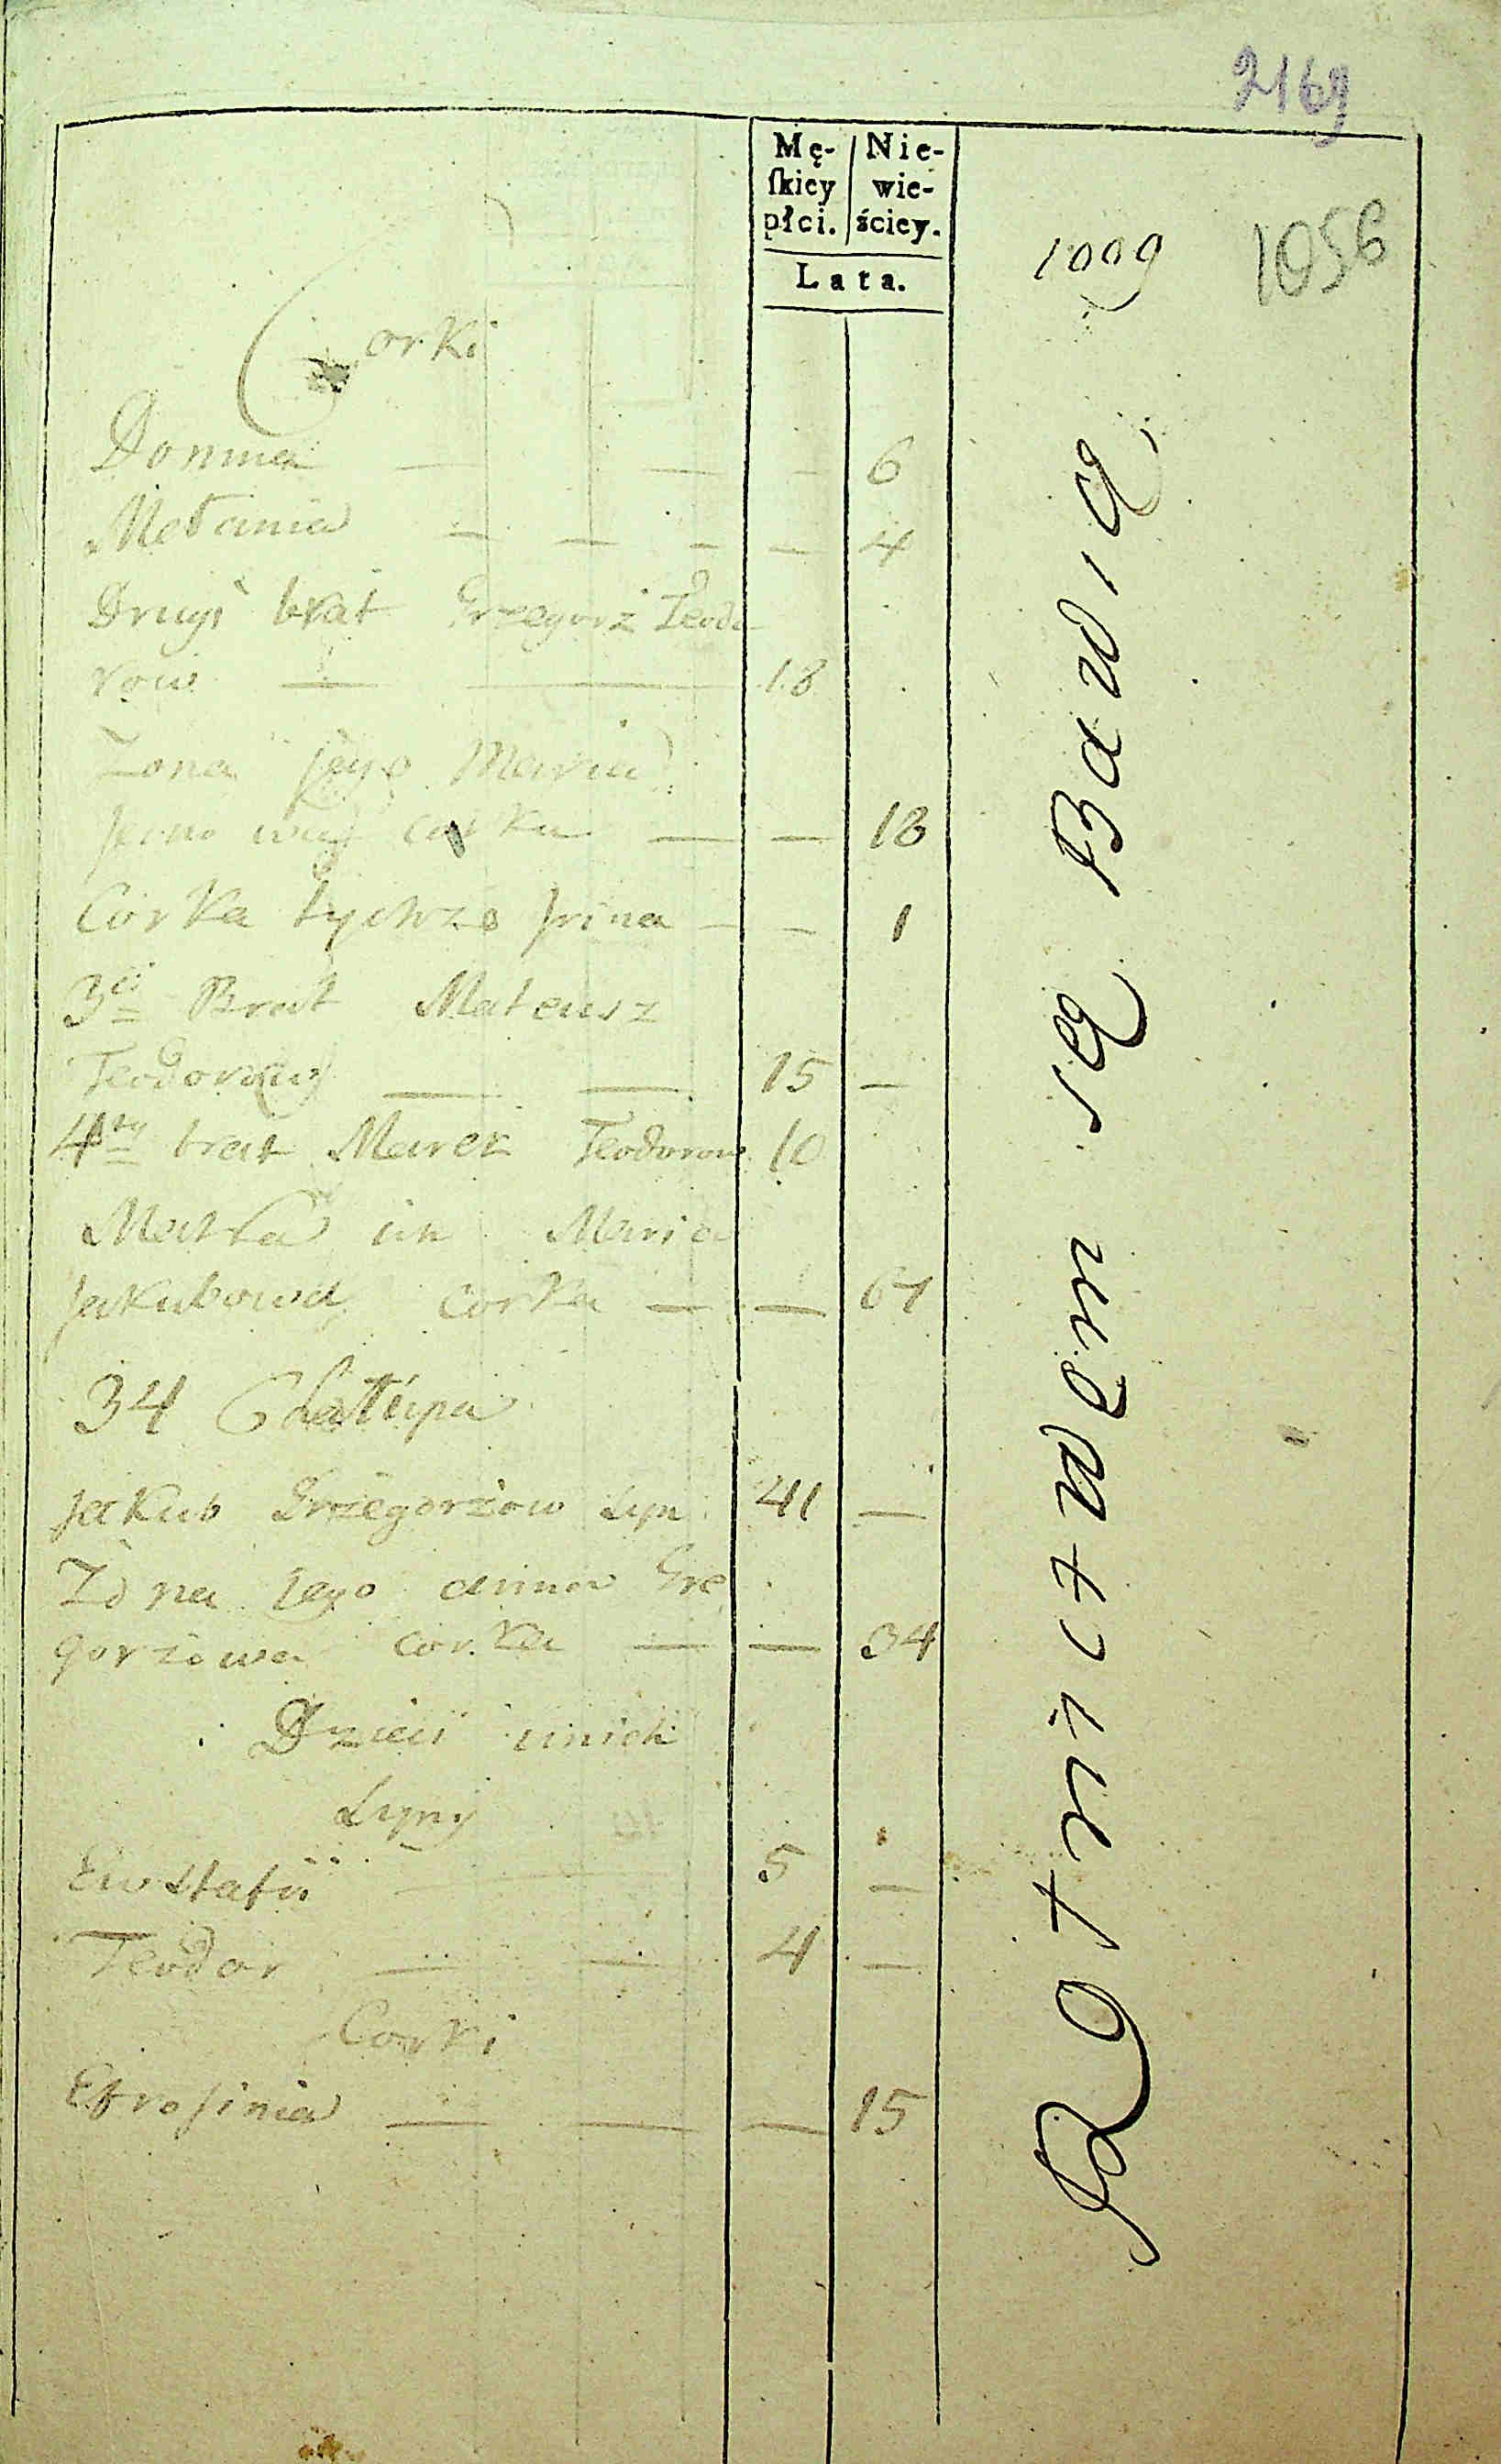 2169
Mę-
skiey
płci.
Nie-
wie-
ściey.
Lata.
1009
1056
Corki
Domna — — — 6
Mełania — — — — 4
Drugi brat Grzegorz Teodo
row — — 18
Zona jego Maria
corka — — 18
Corka tychze Jrina — — 1
3ci Brat Mateusz
Teodorow — — 15 —
4ty brat Marek Teodorow 10
Matka ich Maria
Jakubowa corka — — 67
34 Chałupa
Jakub Grzegorzow syn 41 —
Zona jego anna Gre
gorzowa corka — — 34
Dzieci unich
Syny
Ewstafii — 5 —
Teodor — — 4 —
Corki
Efrosinia — — — 15
Rolnictwem się Bawią,